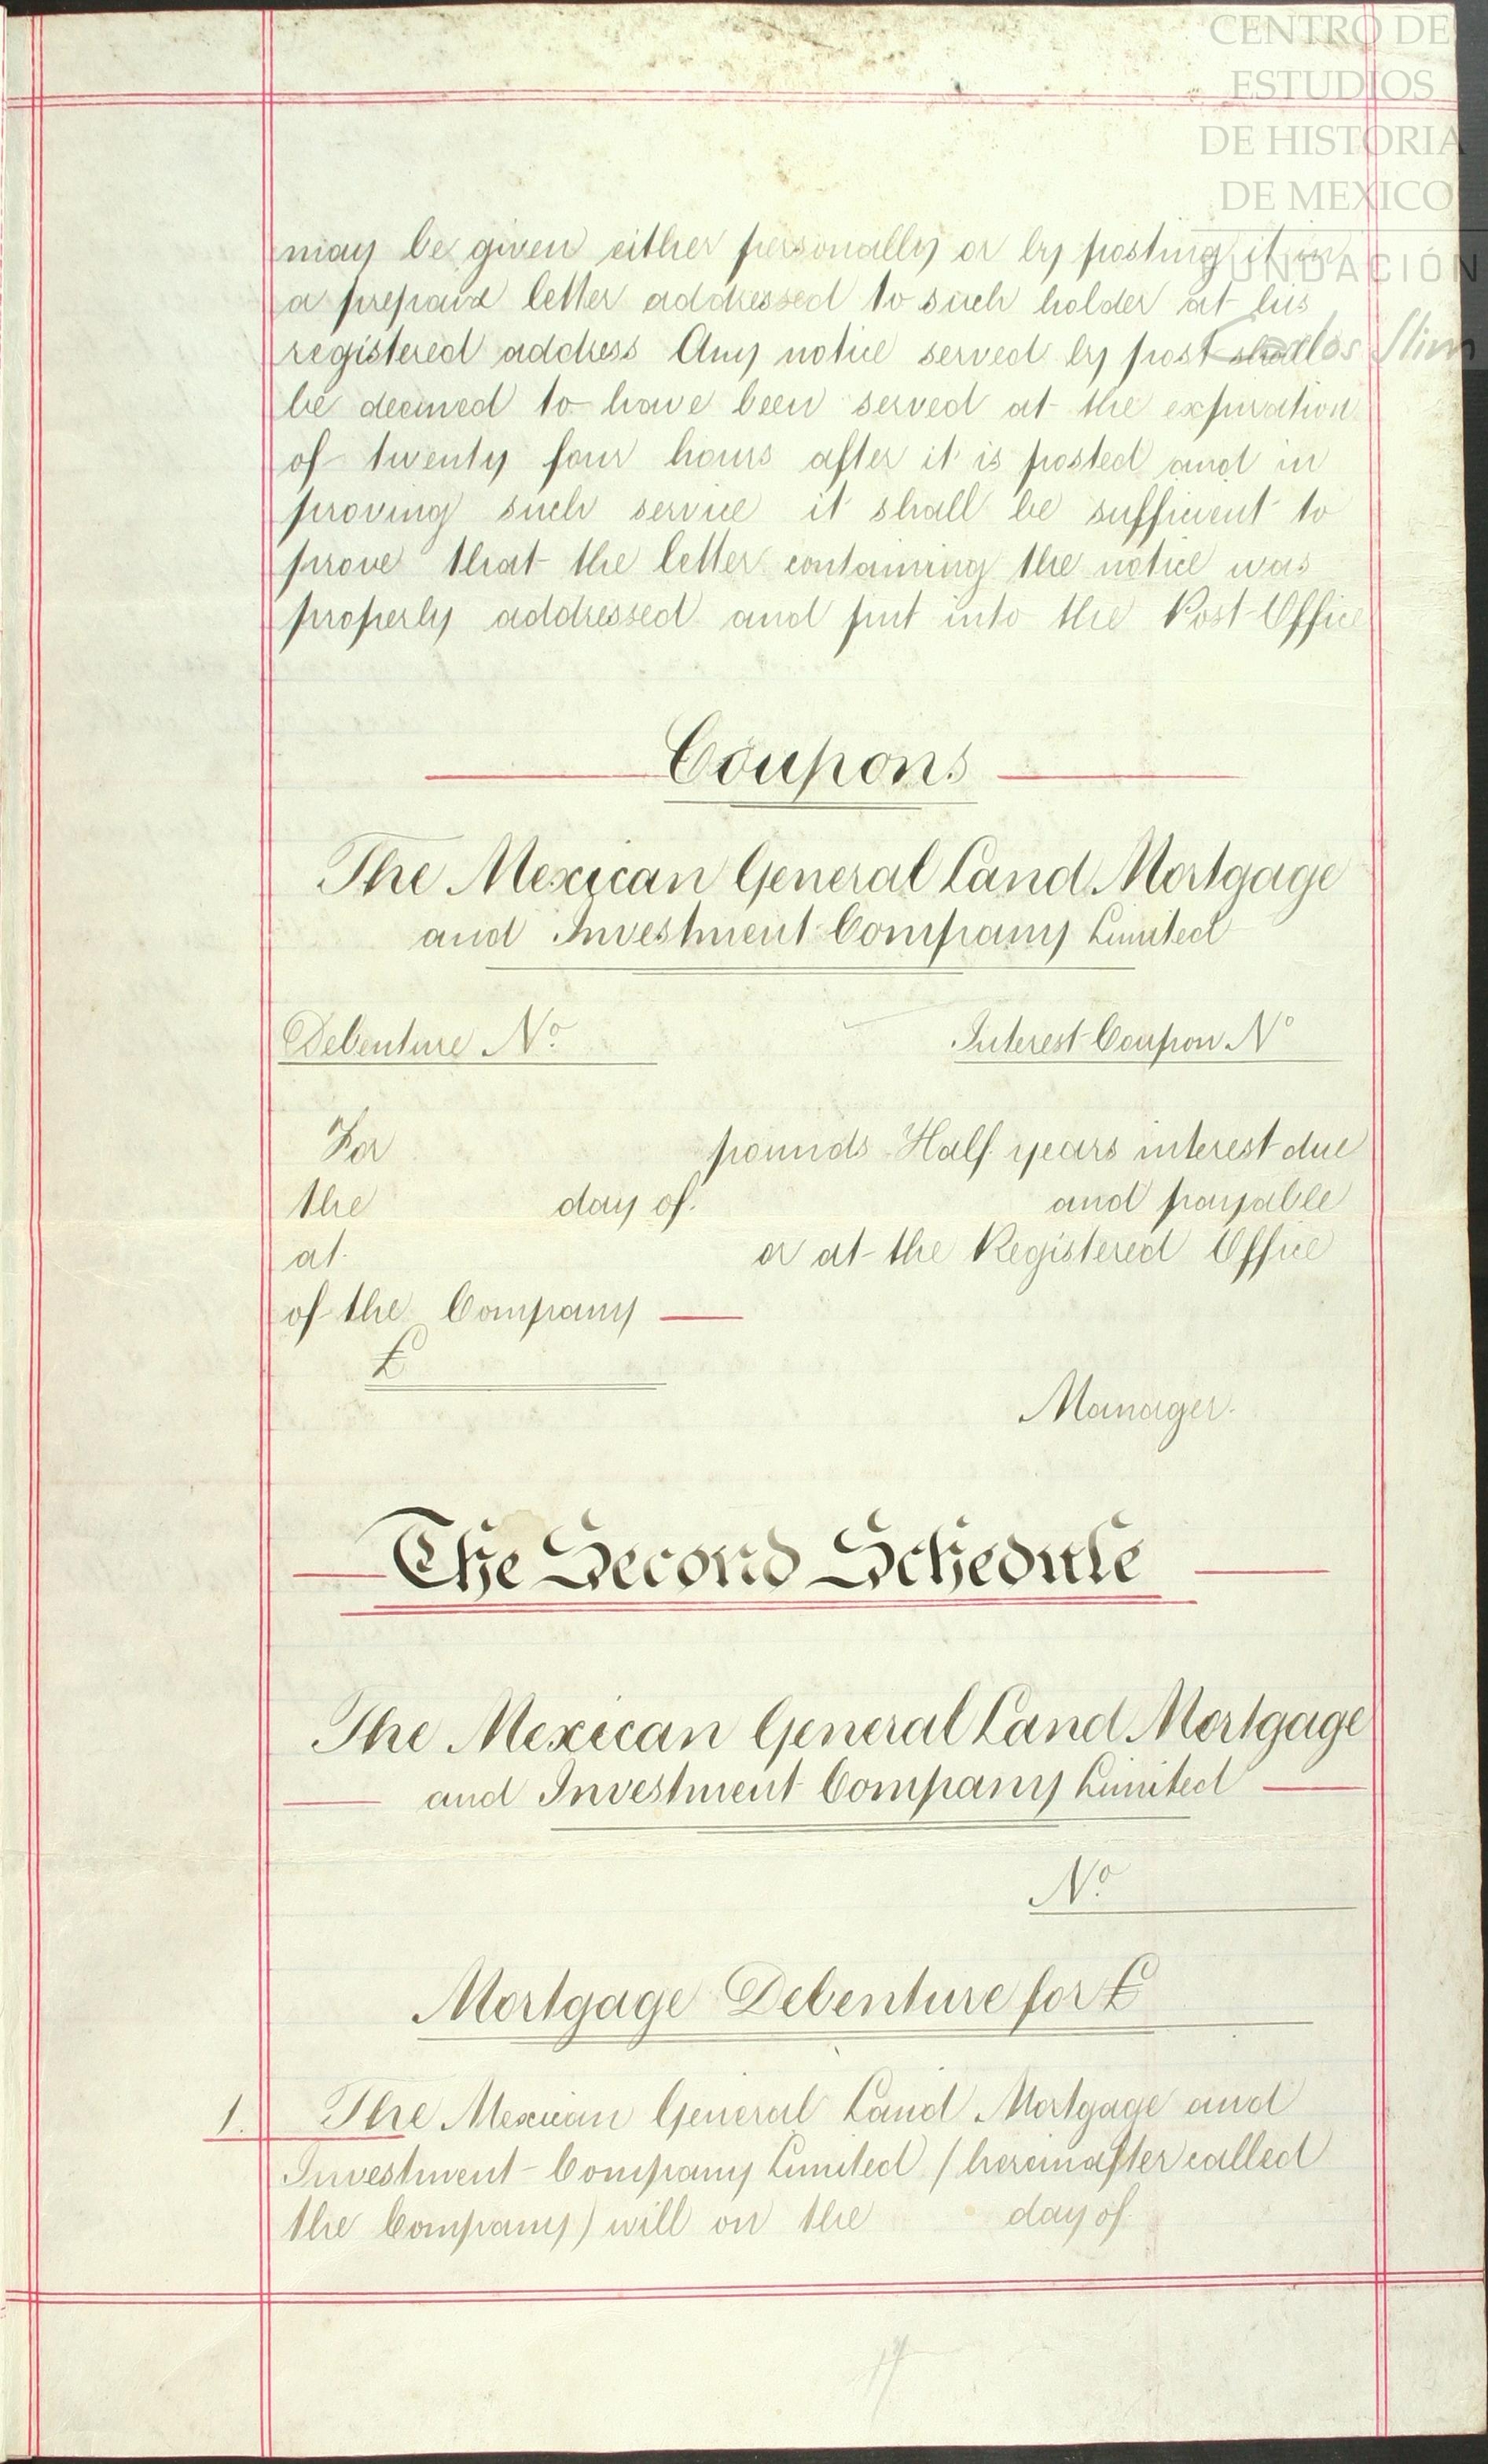 CENTRO DE
ESTUDIOS
DE HISTORIA
DE MEXICO
FUNDACIÓN
Carlos Slim
may be given either personally or by posting it in
a prepaid letter addressed to such holder at his
registered address Any notice served by post shall
be deemed to have been served at the expiration
of twenty four hours after it is posted and in
proving such service it shall be sufficient to
prove that the letter containing the notice was
properly addressed and put into the Post Office
Coupons
The Mexican General Land Mortgage
and Investment Company Limited
Debenture No. Interest Coupon No
For pounds Half years interest due
the day of and payable
at or at the Registered Office
of the Company
£
Manager.
The Second Schedule
The Mexican General Land Mortgage
and Investment Company Limited
No.
Mortgage Debenture for £
1. The Mexican General Land Mortgage and
Investment Company Limited (hereinafter called
the Company) will on the day of